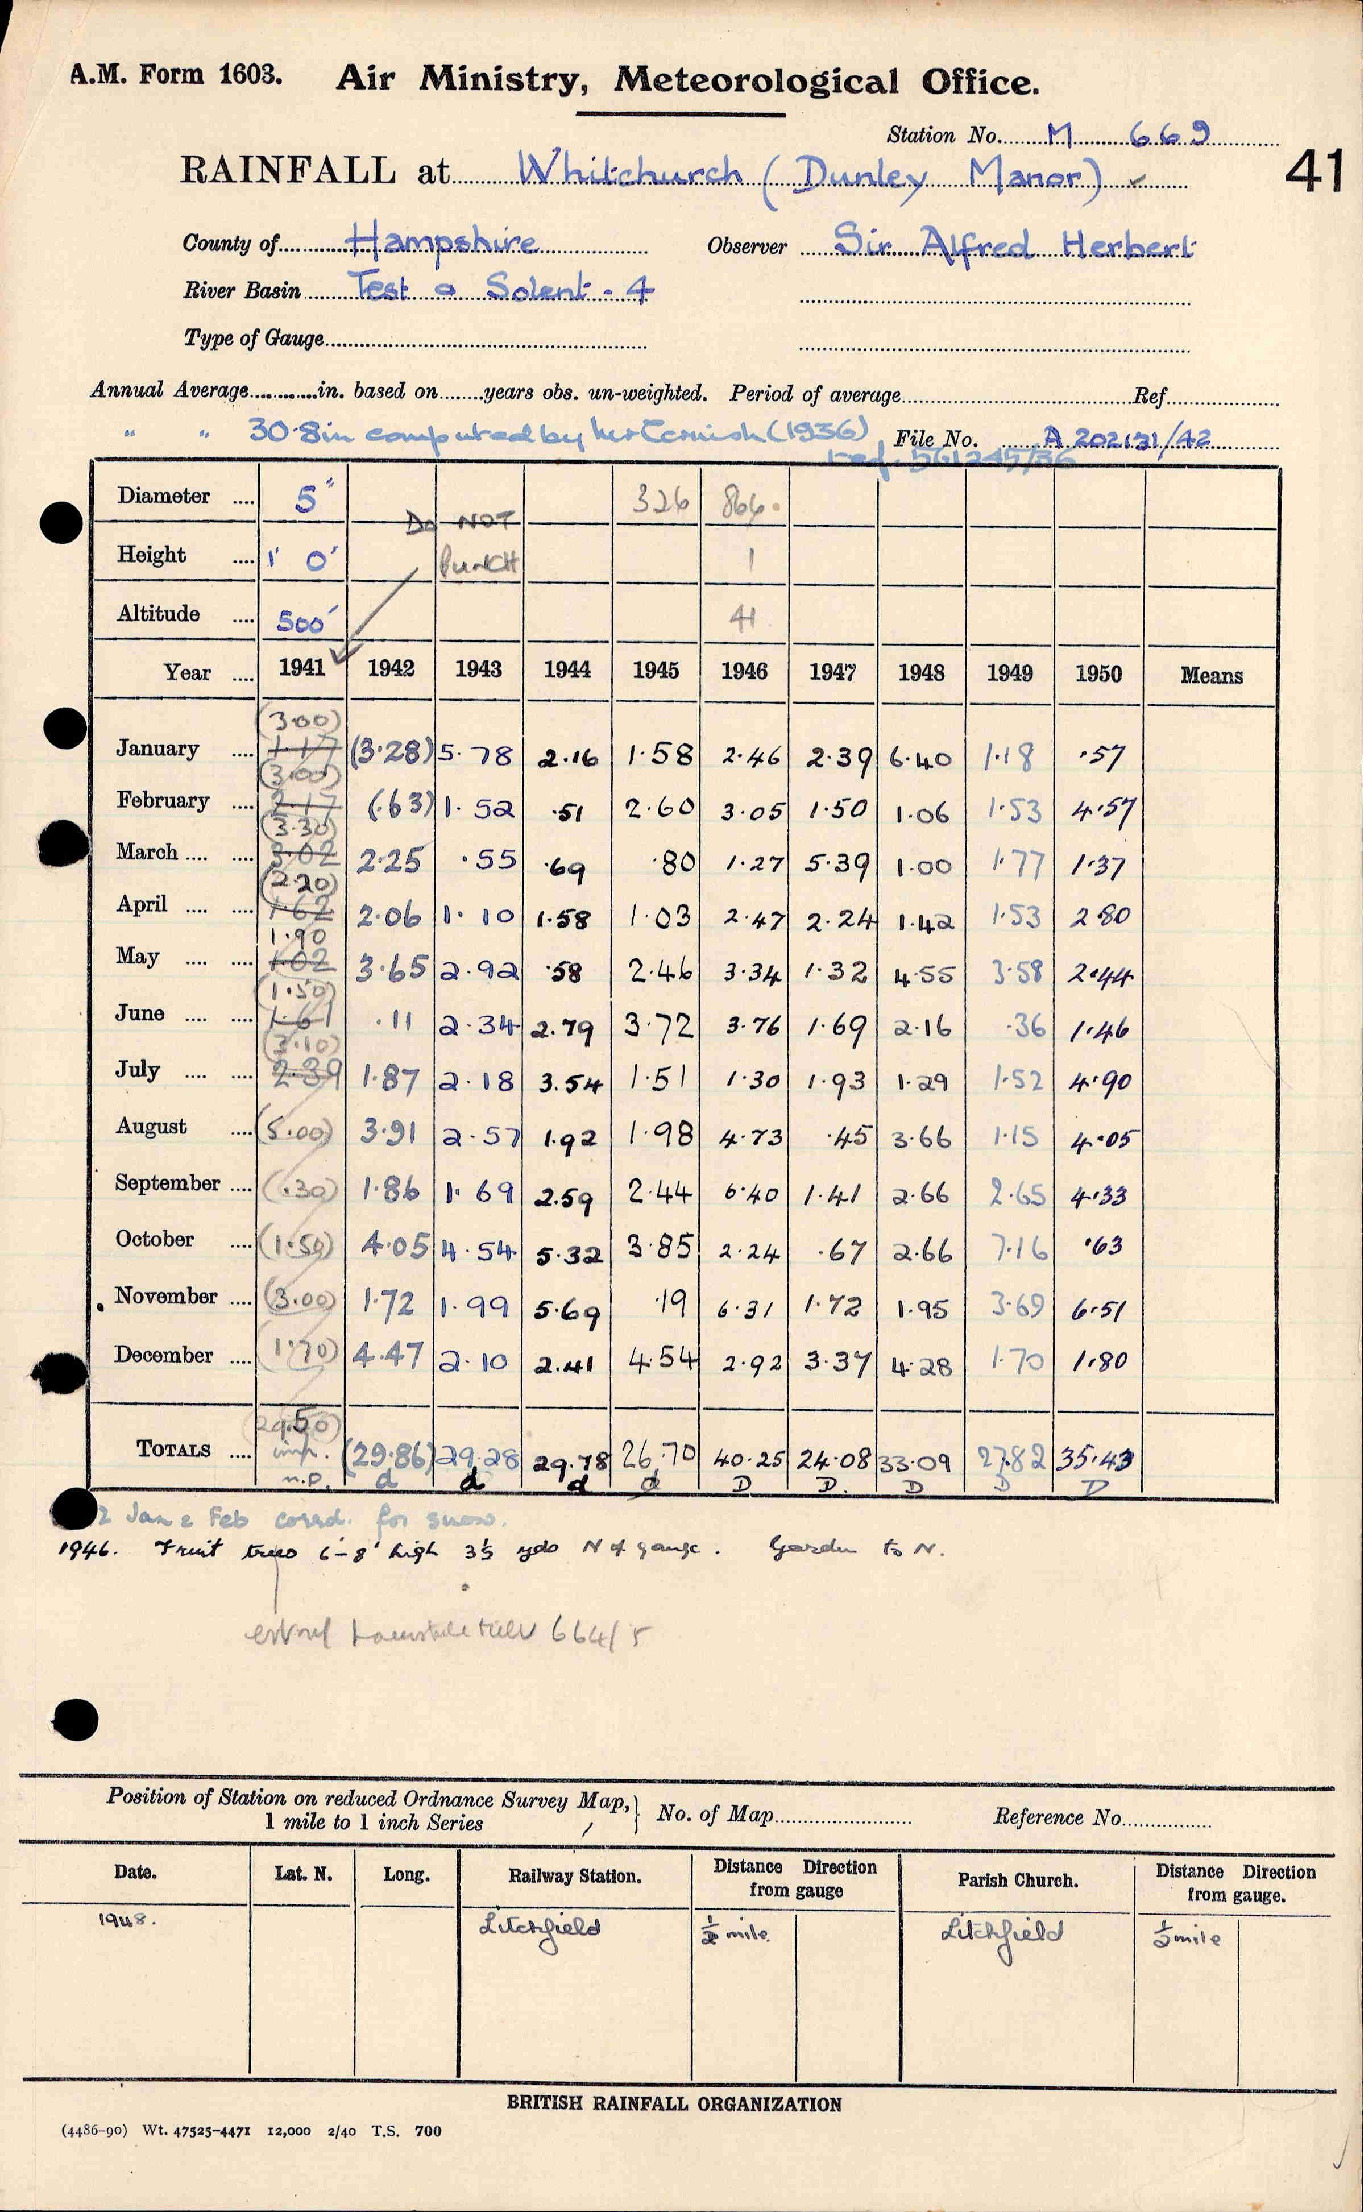 A.M. Form 1603. Air Ministry, Meteorological Office.
Station No. M 669
41
RAINFALL at Whitchurch (Dunley Manor) ✓
County of Hampshire Observer Sir Alfred Herbert
River Basin Test & Solent - 4
Type of Gauge
Annual Average in. based on years obs. un-weighted. Period of average Ref
" " 30.8in computed by (1936) File No. A 202131/42
Diameter 5" 326 864.
Do NOT
Height 1' 0" PUNCH 1
Altitude 500' 41
Year 1941 1942 1943 1944 1945 1946 1947 1948 1949 1950 Means
(3.00)
January 1.17 (3.28) 5.78 2.16 1.58 2.46 2.39 6.40 1.18 .57
(3.00)
February 2.17 (.63) 1.52 .51 2.60 3.05 1.50 1.06 1.53 4.57
(3.30)
March 3.02 2.25 .55 .69 .80 1.27 5.39 1.00 1.77 1.37
(2.20)
April 1.62 2.06 1.10 1.58 1.03 2.47 2.24 1.42 1.53 2.80
1.90
May 1.02 3.65 2.92 .58 2.46 3.34 1.32 4.55 3.58 2.44
(1.50)
June 1.61 .11 2.34 2.79 3.72 3.76 1.69 2.16 .36 1.46
(3.10)
July 2.39 1.87 2.18 3.54 1.51 1.30 1.93 1.29 1.52 4.90
August (5.00) 3.91 2.57 1.92 1.98 4.73 .45 3.66 1.15 4.05
September (.30) 1.86 1.69 2.59 2.44 6.40 1.41 2.66 2.65 4.33
October (1.50) 4.05 4.54 5.32 3.85 2.24 .67 2.66 7.16 .63
November (3.00) 1.72 1.99 5.69 .19 6.31 1.72 1.95 3.69 6.51
December (1.70) 4.47 2.10 2.41 4.54 2.92 3.37 4.28 1.70 1.80
(29.50)
TOTALS imp. (29.86) 29.28 29.78 26.70 40.25 24.08 33.09 27.82 35.43
n.p. d d d d D D. D D D
2 Jan & Feb corrd. for snow.
1946. Fruit trees 6'-8' high 3½ yds N of gauge. Garden to N.
664/5
Position of Station on reduced Ordnance Survey Map, 1 mile to 1 inch Series } No. of Map Reference No.
Date. Lat. N. Long. Railway Station. Distance Direction from gauge Parish Church. Distance Direction from gauge.
1948. Litchfield ½ mile Litchfield ½ mile
BRITISH RAINFALL ORGANIZATION
(4486-90) Wt. 47525-4471 12,000 2/40 T.S. 700